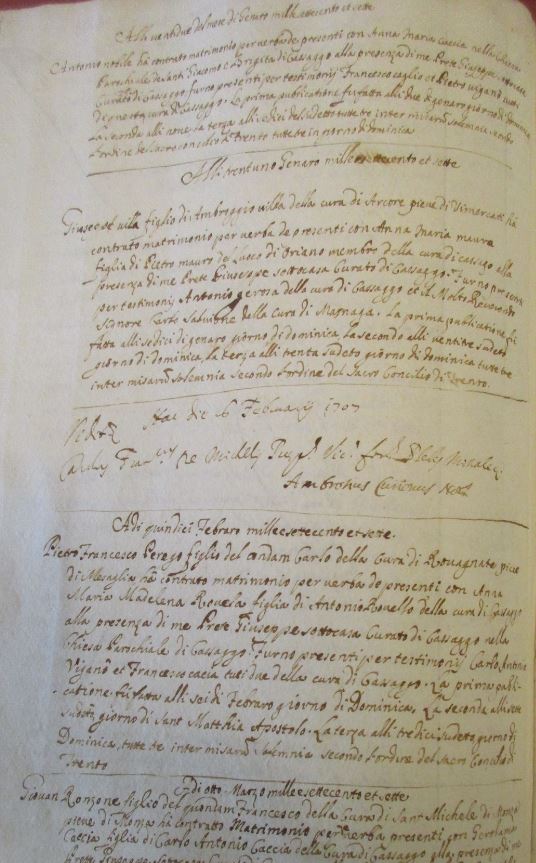 Alli ventidue del mese di Genaro mille settecento et sette
Antonio nobile hà contrato matrimonio per verba de presenti con Anna Maria Caccia nella Chiesa
Parochiale de Santi Giacomo et Brigita di Cassago alla presenza di me Prete Giuseppe
Curato di Cassago furno presenti per testimonij Francesco et Pietro viganò
di questa cura di Cassago. La prima publicatione fu fatta alli due di genaro giorno di domenica
la seconda alli nove la terza alli sedici del sudetto tutte tre inter misarũ solemnia secondo
l'ordine del sacro concilio di Trento tutte tre in giorno di dominica
Alli trent uno Genaro mille settecento et sette
Giuseppe villa figlio di Ambroggio villa della cura di Arcore pieve di Vimercati hà
contrato matrimonio per verba de presenti con Anna Maria mauro
figlia di Pietro mauro de luoco di Oriano membro della cura di cassago alla
presenza di me Prete Giuseppe sottocasa Curato di Cassago. Furno presenti
per testimonij Antonio gerosa della cura di Cassago et il Molto Reverendo
signore Carlo della Cura di Magnaga. La prima publicatione fu
fatta alli sedici di genaro giorno di dominica la secondo alli ventitre sudeto
giorno di dominica, la terza alli trenta sudeto giorno di dominica tutte tre
inter misarũ solemnia secondo l'ordine del Sacro Concilio di Trento.
Hac die 16 February 1707
Carolus de Vic.
Ambrosius
Adi quindici Febraro mille e settecento et sette.
Pietro Francesco Perego figlio del condam Carlo della Cura di Rovagnate pieve
di Mesaglia hà contrato matrimonio per verba de presenti con Anna
Maria Madelena Rovela figlia di Antonio Rovello della cura di Cassago
alla presenza di me Prete Giuseppe sottocasa Curato di Cassago nella
Chiesa Parochiale di Cassago. Furno presenti per testimonij Carlo Antonio
Viganò et Francesco cacia tuti due della cura di Cassago. La prima publi-
catione fu fatta alli sei di Febraro giorno di Dominica, la seconda alli sette
sudetto, giorno di Sant Matthia Apostolo. La terza alli tredici sudeto giorno di
Dominica, tutte tre inter misarũ solemnia secondo l'ordine del sacro Concilio di
Trento
Adi otto Marzo mille e settecento et sette
Giovan Ronzone figlio del quondam Francesco della Cura di Sant Michele di Monza
pieve di Monza hà contratto Matrimonio per verba presenti con
Caccia figlia di Carlo Antonio Caccia della Cura di Cassago alla presenza di me
Prete Giuseppe